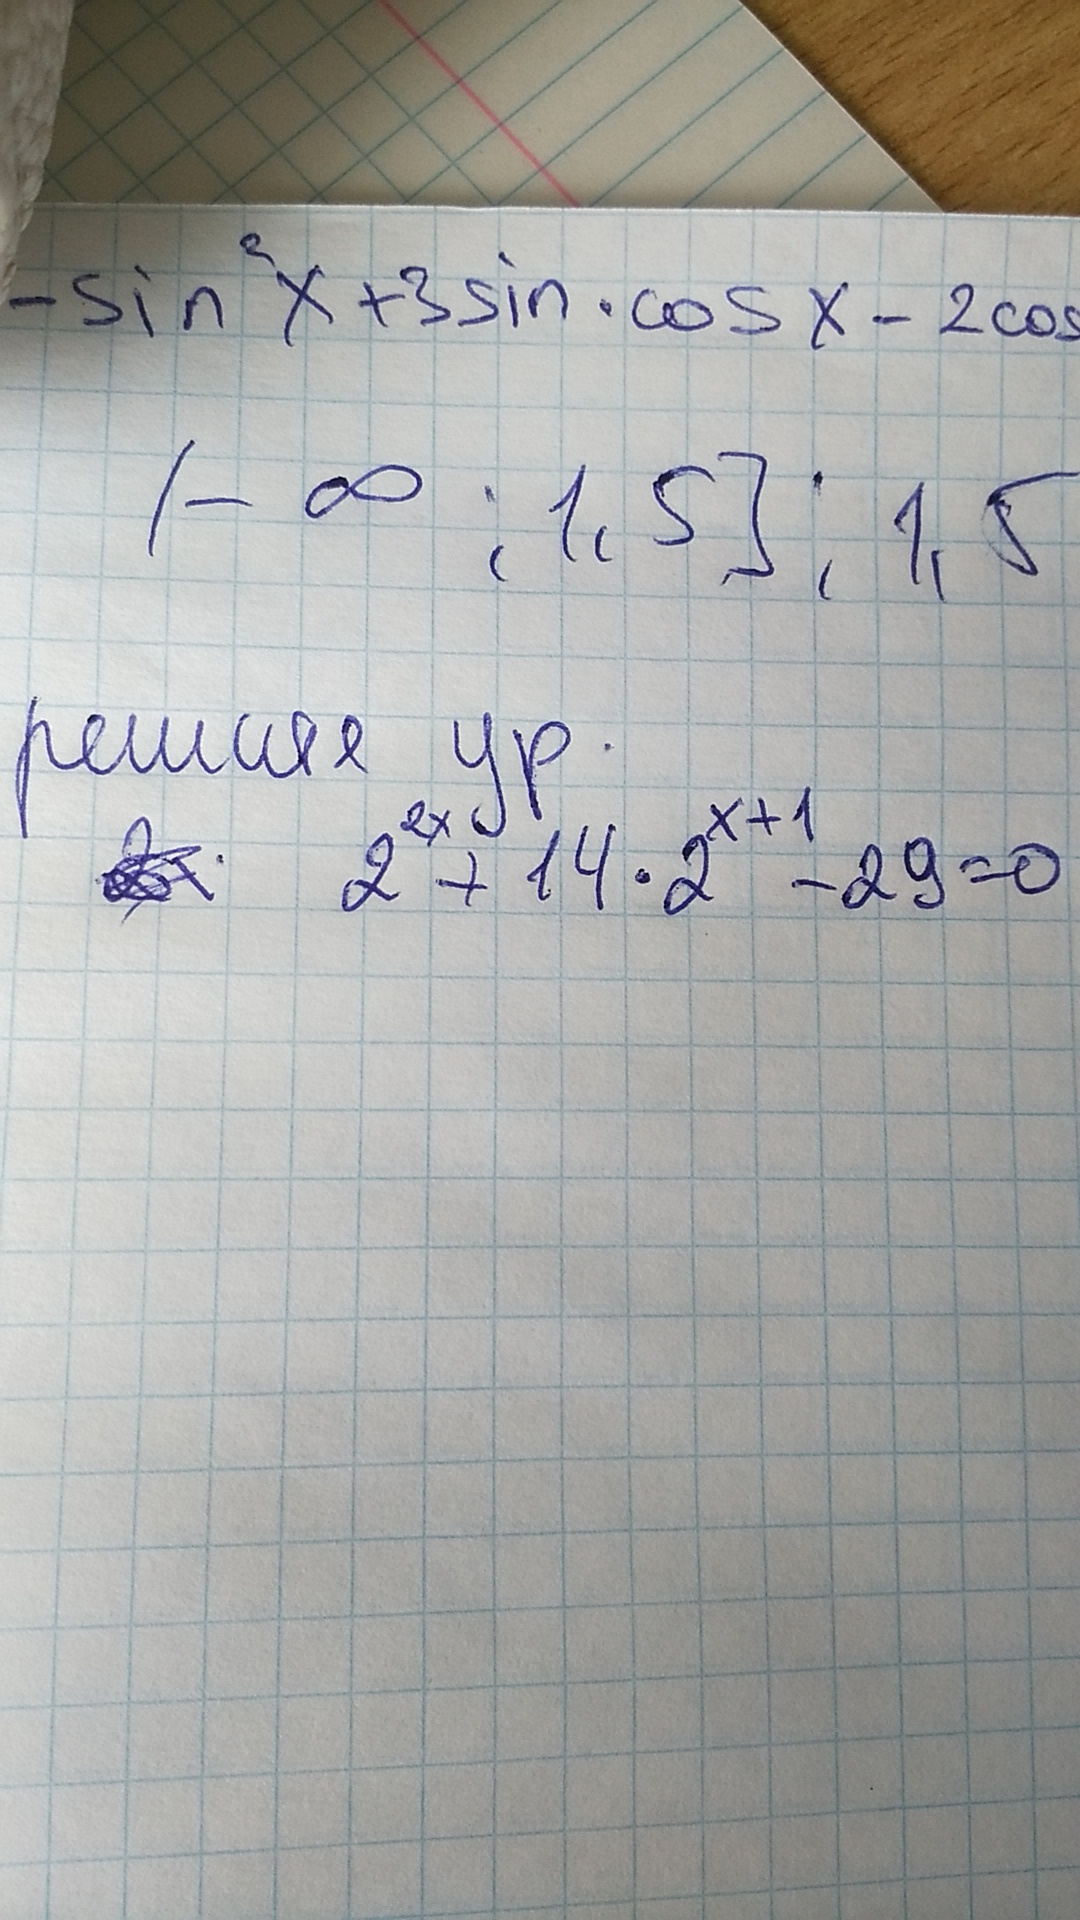 -sin²x+3sin·cosx-2cos
(-∞;1,5];1,5
решите ур.
2²ˣ+14·2ˣ⁺¹-29=0